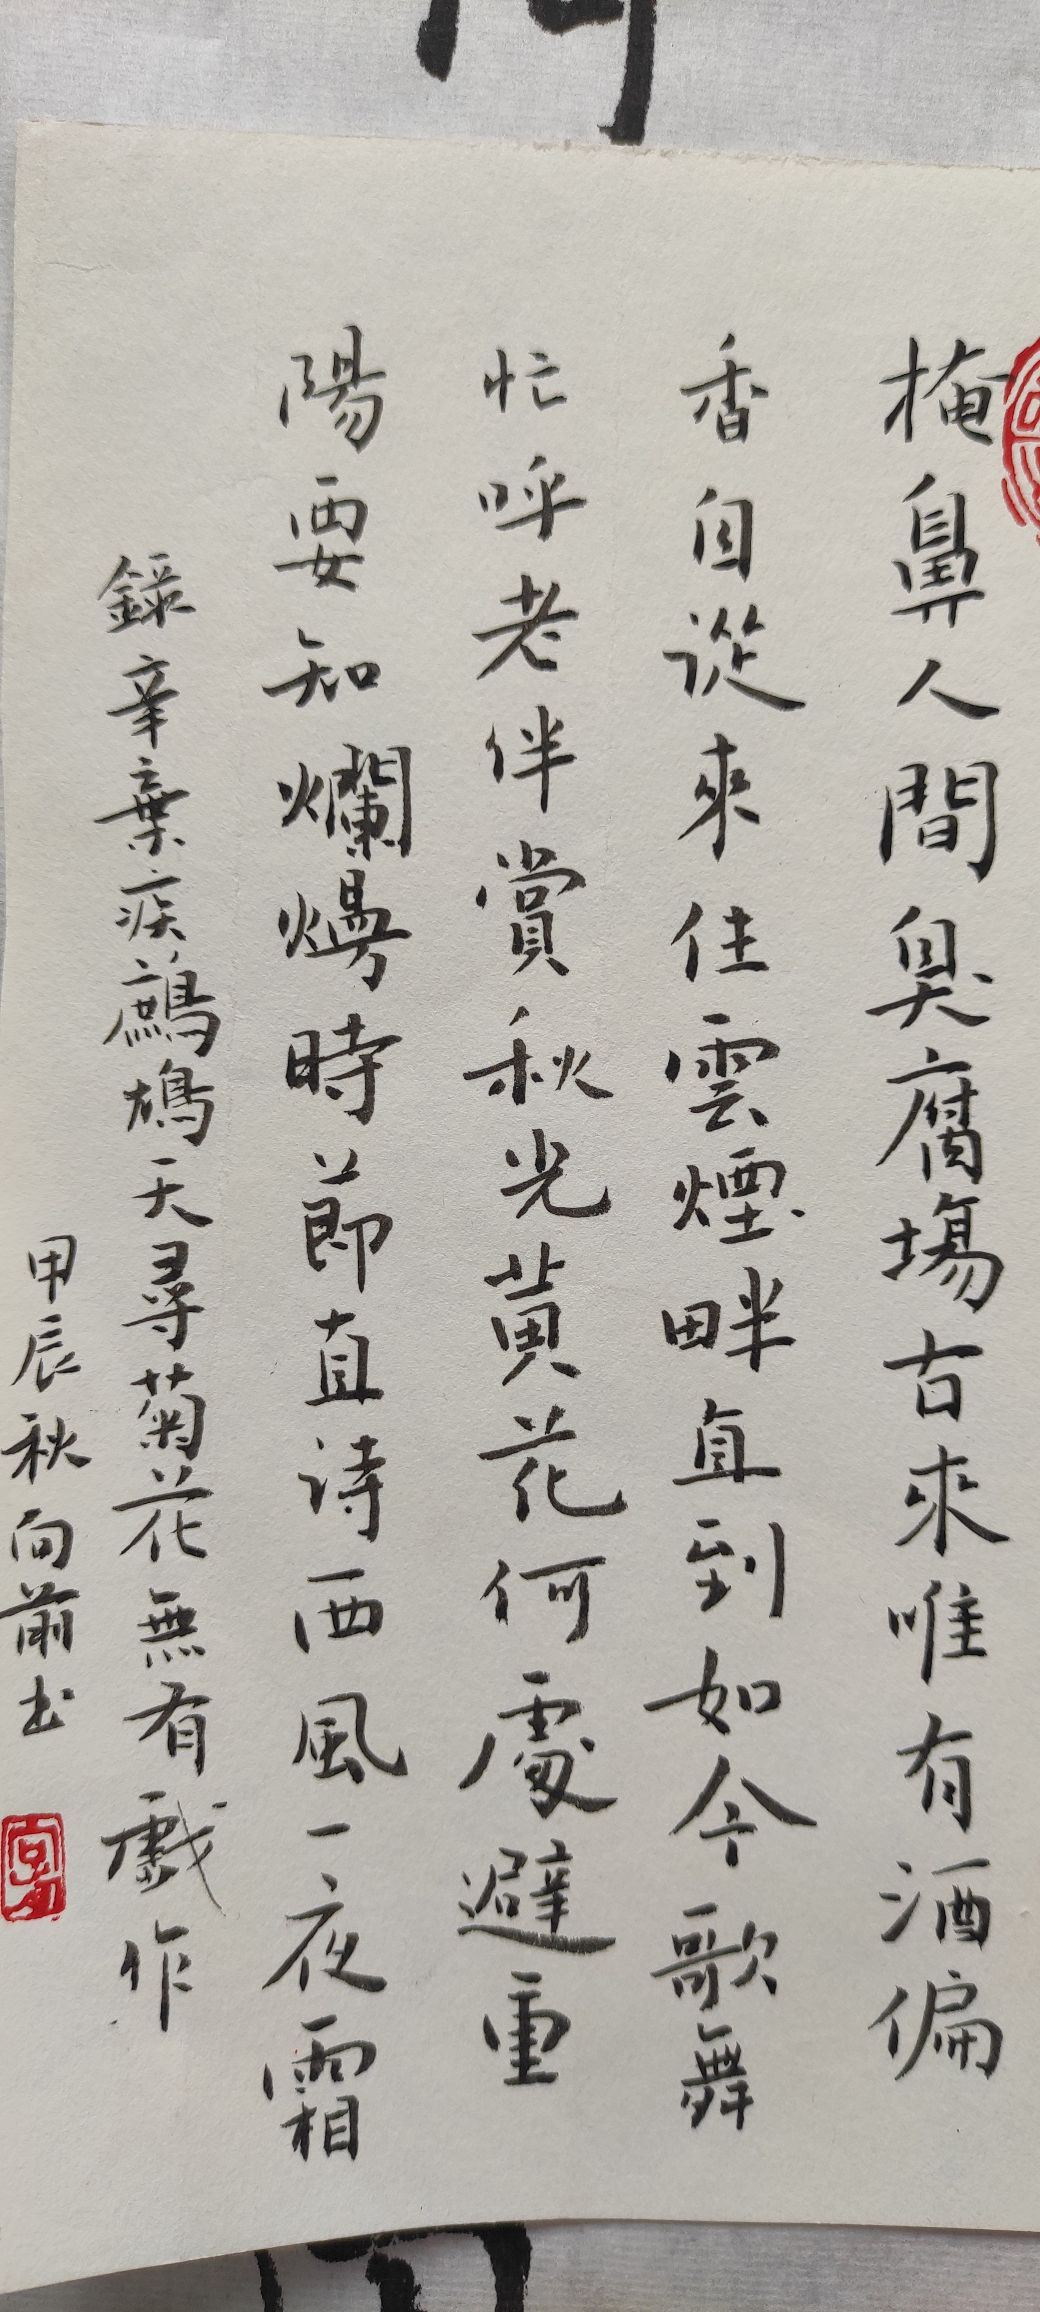 掩鼻人間臭腐場古來唯有酒偏
香自從來住雲煙畔直到如今歌舞
忙呼老伴賞秋光黃花何處避重
陽要知爛熳時節直待西風一夜霜
錄辛棄疾鷓鴣天尋菊花無有戲作
甲辰秋向前书